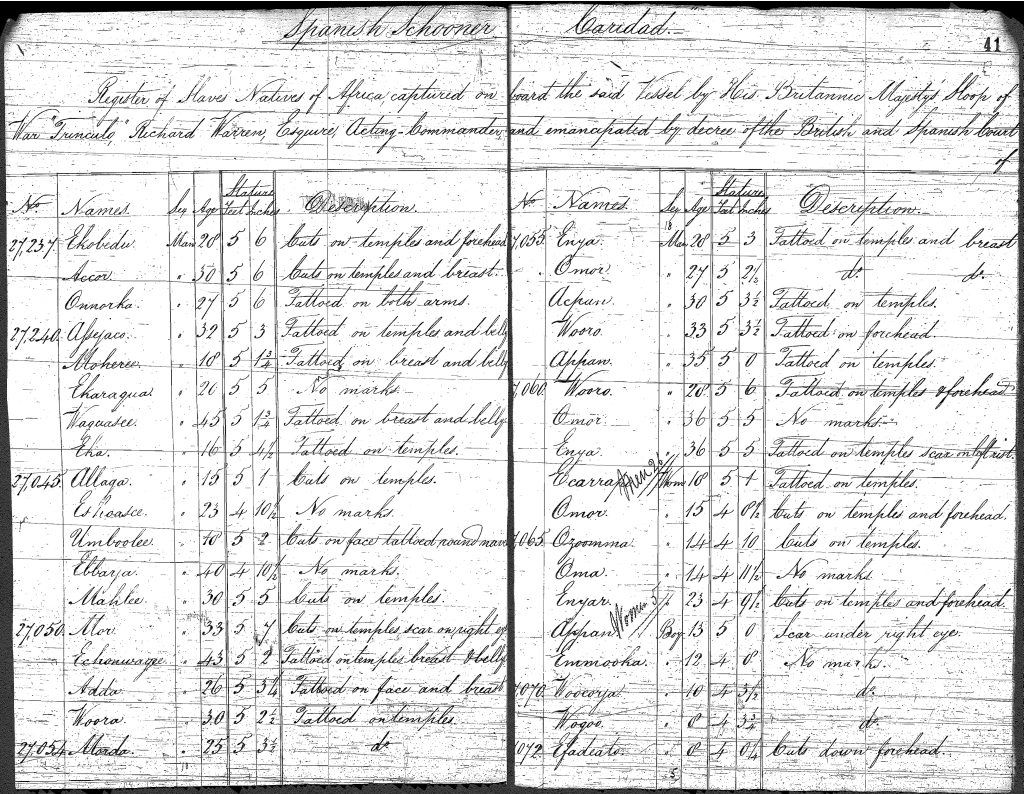 Spanish Schooner Caridad.-
41
Register of Slaves Natives of Africa, captured on board the said Vessel by His Britannic Majesty's Sloop of
War "Trinculo," Richard Warren, Esquire, Acting-Commander, and emancipated by decree of the British and Spanish Court
of
No. Names. Sex Age Stature Feet Inches Description.
27,237. Ekobedu Man 28 5 6 Cuts on temples and forehead
Accor. " 30 5 6 Cuts on temples and breast.
Onnorka. " 27 5 6 Tattoed on both arms.
27,240. Assejaco. " 32 5 3 Tattoed on temples and belly
Moheree. " 18 5 1¾ Tattoed on breast and belly
Eharaqua. " 20 5 5 No marks.-
Waguasee. " 45 5 1¾ Tattoed on breast and belly
Eha. " 16 5 4½ Tattoed on temples.
27,045. Allaga. " 15 5 1 Cuts on temples.
Eshoasee. " 23 4 10½ No marks.
Umboolee. " 18 5 2 Cuts on face tattoed round nave
Ebbarja. " 40 4 10½ No marks.
Mahlee. " 30 5 5 Cuts on temples.
27,050. Mor. " 33 5 7 Cuts on temples, scar on right
Echonwagee. " 43 5 2 Tattoed on temples breast & belly
Adda. " 26 5 3¼ Tattoed on face and breast
Woora. " 30 5 2½ Tattoed on temples.
27,054. Morda. " 25 5 3½ do.
No. Names. Sex Age Stature Feet Inches Description.-
18
7,055. Enya. Man 28 5 3 Tattoed on temples and breast
Omor. " 27 5 2½ do. do.
Acpan. " 30 5 3½ Tattoed on temples.
Wooro. " 33 5 3½ Tattoed on forehead.
Appan. " 35 5 0 Tattoed on temples.
7,060. Wooro. " 28 5 6 Tattoed on temples & forehead
Omor. " 36 5 5 No marks.-
Enya. " 36 5 5 Tattoed on temples scar on left rist.
Ocarra. Men 26 Wom 18 5 1 Tattoed on temples.
Omor. " 15 4 8½ Cuts on temples and forehead.
7,065. Ozoomma. " 14 4 10 Cuts on temples.
Oma. " 14 4 11½ No marks
Enyar. " 23 4 9½ Cuts on temples and forehead.
Appan. Women 5 Boy 13 5 0 Scar under right eye.
Emmooha. " 12 4 8 No marks.
7,070. Woocorja. " 10 4 3½ do.
Wogoo. " 8 4 3¾ do.
7,072. Efadeato. " 8 4 0¼ Cuts down forehead.
5